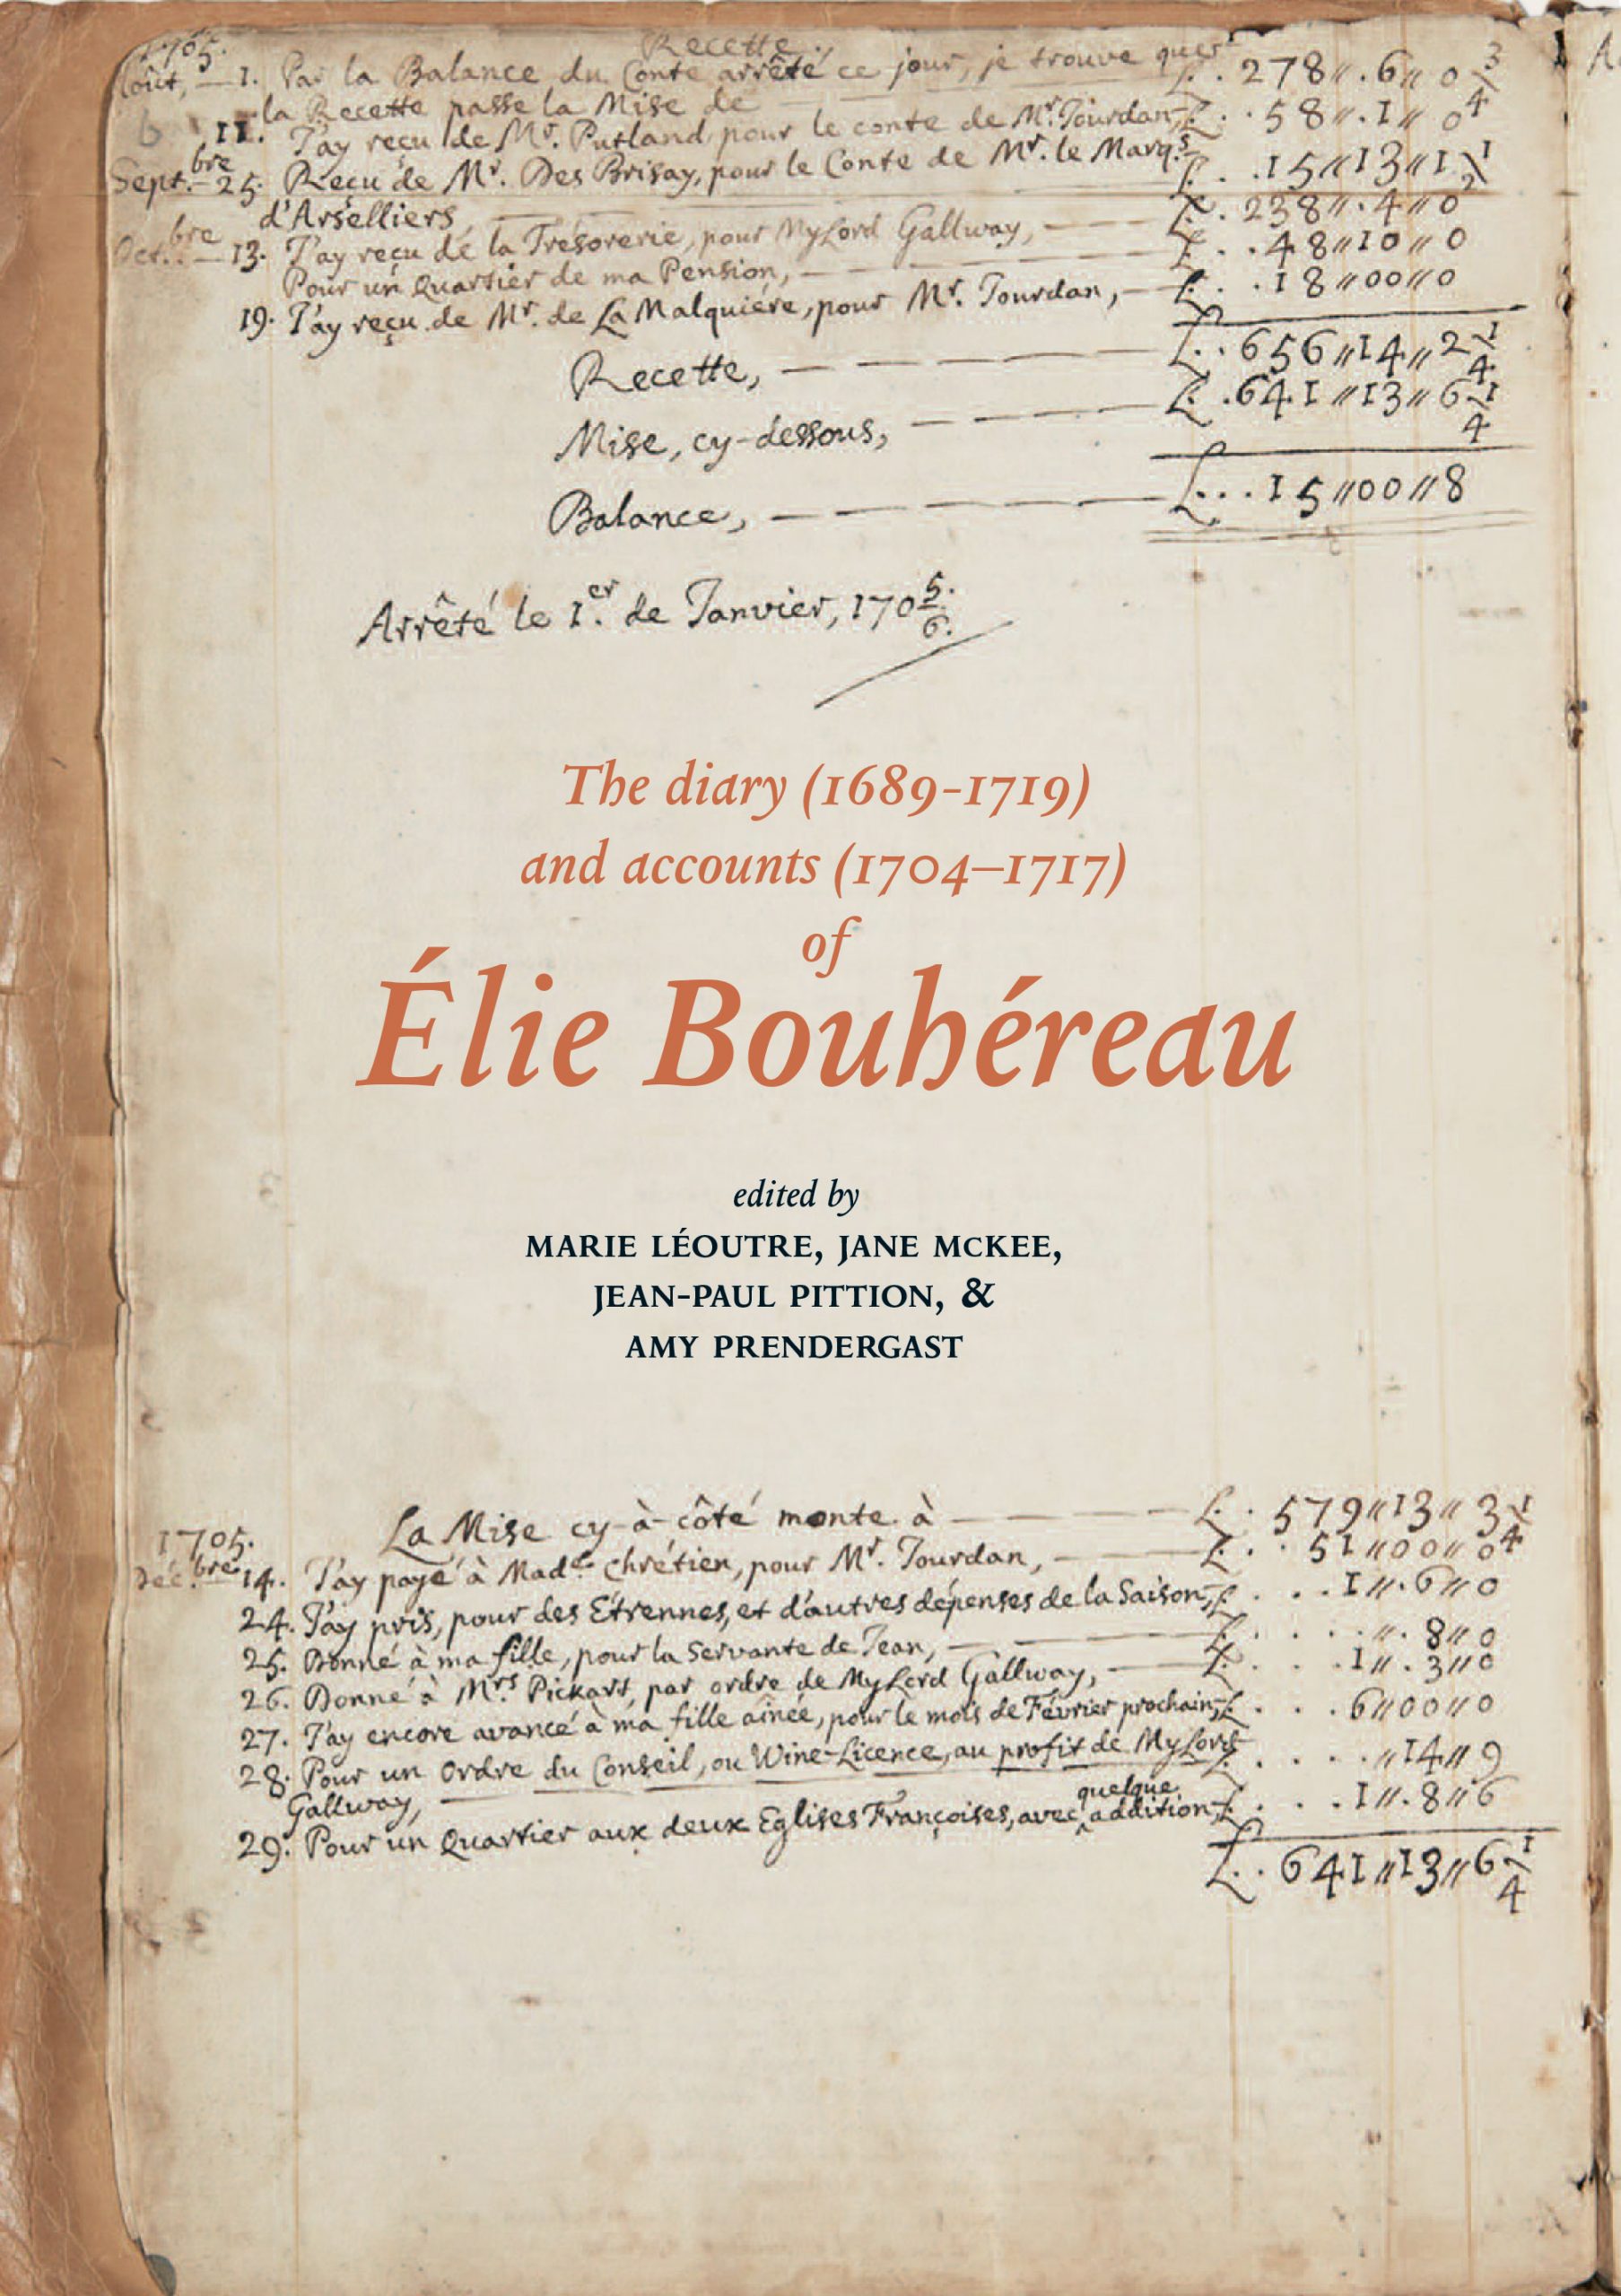 1705.
Recette.
Août, — 1. Par la Balance du Conte arrêté ce jour, je trouve que
la Recette passe la Mise de £. . 278 〃 . 6 〃 0 3/4
11. J'ay reçu de Mr. Putland, pour le conte de Mr. Jourdan, £. . 58 〃 . 1 〃 0
Sept.bre — 25. Reçu de Mr. Des Brisay, pour le Conte de Mr. le Marq.s
d'Arselliers, £. . . 15 〃 13 〃 1 1/2
Oct.bre — 13. J'ay reçu de la Tresorerie, pour MyLord Gallway, — £. . 238 〃 . 4 〃 0
Pour un Quartier de ma Pension, — £. . . 48 〃 10 〃 0
19. J'ay reçu de Mr. de La Malquiére, pour Mr. Jourdan, — £. . . 18 〃 00 〃 0
Recette, — £. . 656 〃 14 〃 2 1/4
Mise, cy-dessous, — £. . 641 〃 13 〃 6 1/4
Balance, — £. . . 15 〃 00 〃 8
Arrêté le 1.er de Janvier, 170 5/6.
The diary (1689-1719)
and accounts (1704–1717)
of
Élie Bouhéreau
edited by
MARIE LÉOUTRE, JANE McKEE,
JEAN-PAUL PITTION, &
AMY PRENDERGAST
La Mise cy-à-côté monte à — £. . 579 〃 13 〃 3 1/4
1705.
Déc.bre 14. J'ay payé à Mad.e Chrétien, pour Mr. Jourdan, — £. . 51 〃 00 〃 0
24. J'ay pris, pour des Etrennes, et d'autres dépenses de la Saison, £. . . . 1 〃 . 6 〃 0
25. Donné à ma fille, pour la Servante de Jean, — £. . . . 〃 . 8 〃 0
26. Donné à Mrs Pickart, par ordre de MyLord Gallway, — £. . . . 1 〃 . 3 〃 0
27. J'ay encore avancé à ma fille ainée, pour le mois de Février prochain, £. . . . 6 〃 00 〃 0
28. Pour un Ordre du Conseil, ou Wine-Licence, au profit de MyLord
Gallway, — £. . . . 〃 14 〃 9
29. Pour un Quartier aux deux Eglises Françoises, avec quelque addition, £. . . . 1 〃 . 8 〃 6
£. . 641 〃 13 〃 6 1/4